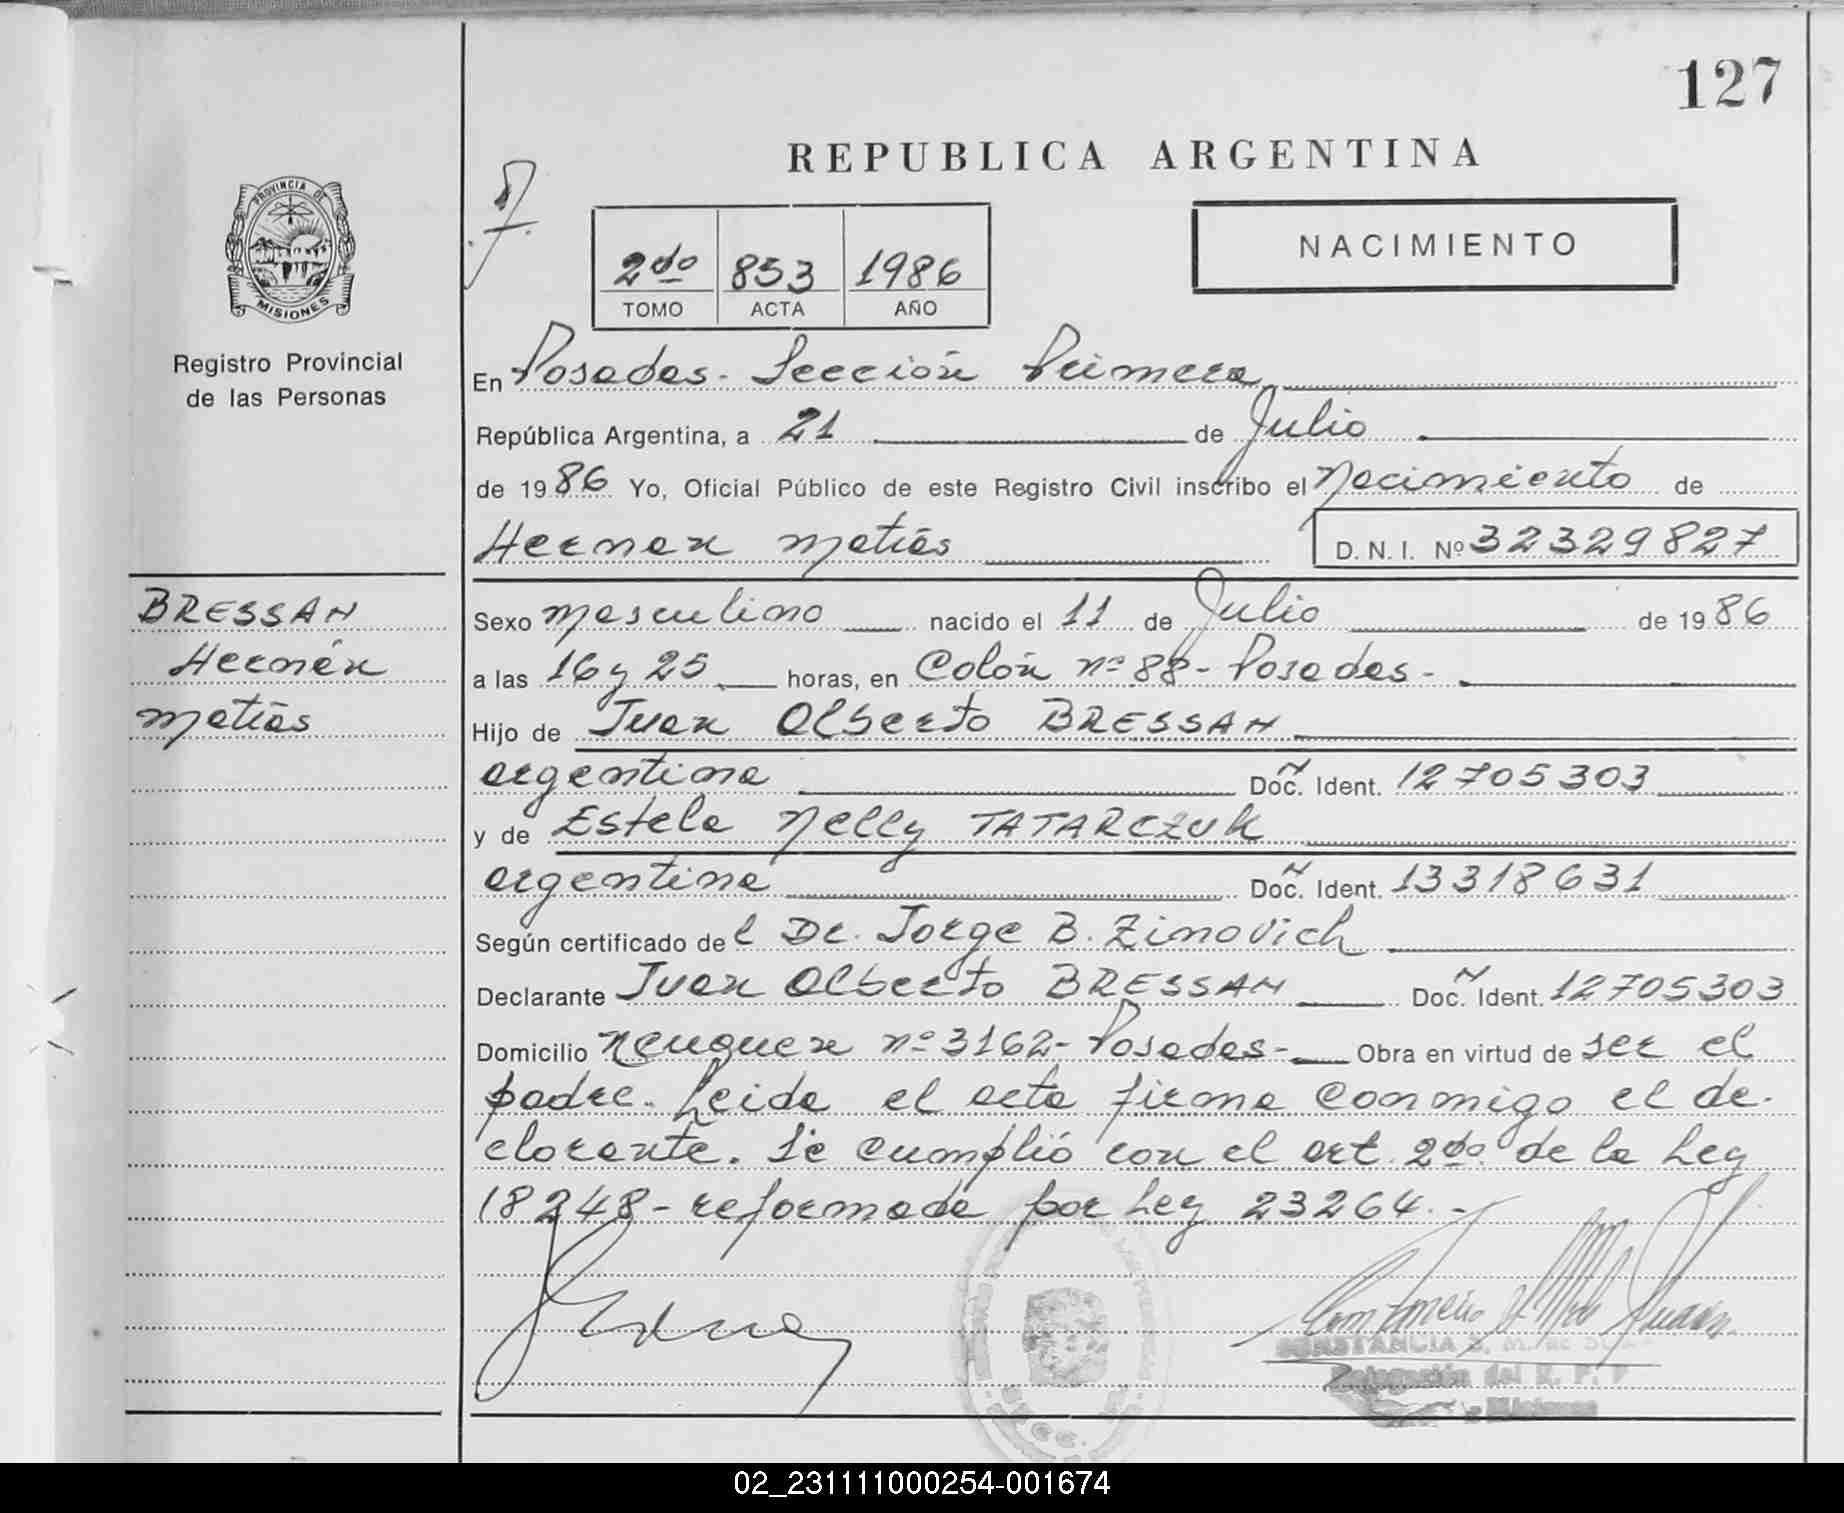 127
REPUBLICA ARGENTINA
PROVINCIA DE
MISIONES
Registro Provincial
de las Personas
2do 853 1986
TOMO ACTA AÑO
NACIMIENTO
En Posadas - Sección Primera
República Argentina, a 21 de Julio
de 1986 Yo, Oficial Público de este Registro Civil inscribo el Nacimiento de
Hernan Matías D.N.I. Nº 32329827
BRESSAN
Hernán
Matías
Sexo Masculino nacido el 11 de Julio de 1986
a las 16 y 25 horas, en Colón nº 88 - Posadas -
Hijo de Juan Alberto BRESSAN
argentina Doc. Ident. 12705303
y de Estela Nelly TATARCZUK
argentina Doc. Ident. 13318631
Según certificado del Dr. Jorge B. Zinovich
Declarante Juan Alberto BRESSAN Doc. Ident. 12705303
Domicilio Neuquen nº 3162 - Posadas - Obra en virtud de ser el
padre. Leida el acta firma conmigo el de-
clarante. Se cumplió con el art. 2do. de la Ley
18248 - reformada por Ley 23264. -
CONSTANCIA
Delegación del R. P. P
Misiones
02_231111000254-001674